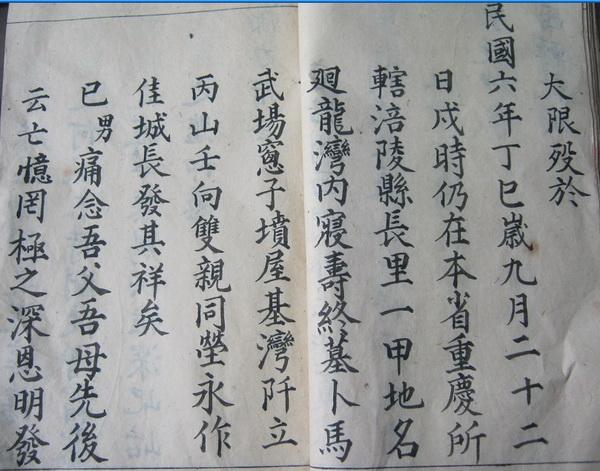 大限歿於
民國六年丁巳歲九月二十二
日戌時仍在本省重慶所
轄涪陵縣長里一甲地名
廻龍灣内寢壽終墓卜馬
武場窻子墳屋基灣阡立
丙山壬向雙親同塋永作
佳城長發其祥矣
已男痛念吾父吾母先後
云亡憶罔極之深恩明發